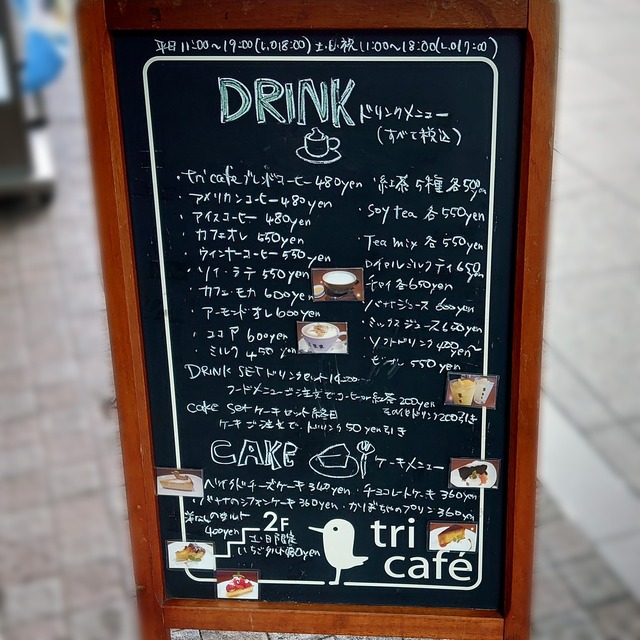 平日 11:00~19:00(L.O18:00) 土・日・祝 11:00~18:00(L.O17:00)
DRINK ドリンクメニュー
(すべて税込)
・tri cafe ブレンドコーヒー 480yen
・アメリカンコーヒー 480yen
・アイスコーヒー 480yen
・カフェオレ 550yen
・ウインナーコーヒー 550yen
・ソイ・ラテ 550yen
・カフェ・モカ 600yen
・アーモンドオレ 600yen
・ココア 600yen
・ミルク 450 yen
・紅茶 5種 各500yen
・Soy tea 各550yen
・Tea mix 各550yen
・ロイヤルミルクティ 650yen
・チャイ 各650yen
・バナナジュース 600yen
・ミックスジュース 600yen
・ソフトドリンク 400
・ビール 550yen
DRINK SET ドリンクセット
フードメニューご注文で、コーヒーor紅茶 200yen
その他ドリンク200引き
cake set ケーキセット 終日
ケーキご注文で、ドリンク50yen引き
CAKE ケーキメニュー
・ベイクドチーズケーキ 340yen ・チョコレートケーキ 360yen
・バナナのシフォンケーキ 360yen ・かぼちゃのプリン 360yen
洋なしのタルト
400yen
土・日限定
いちごタルト
2F
tri
café